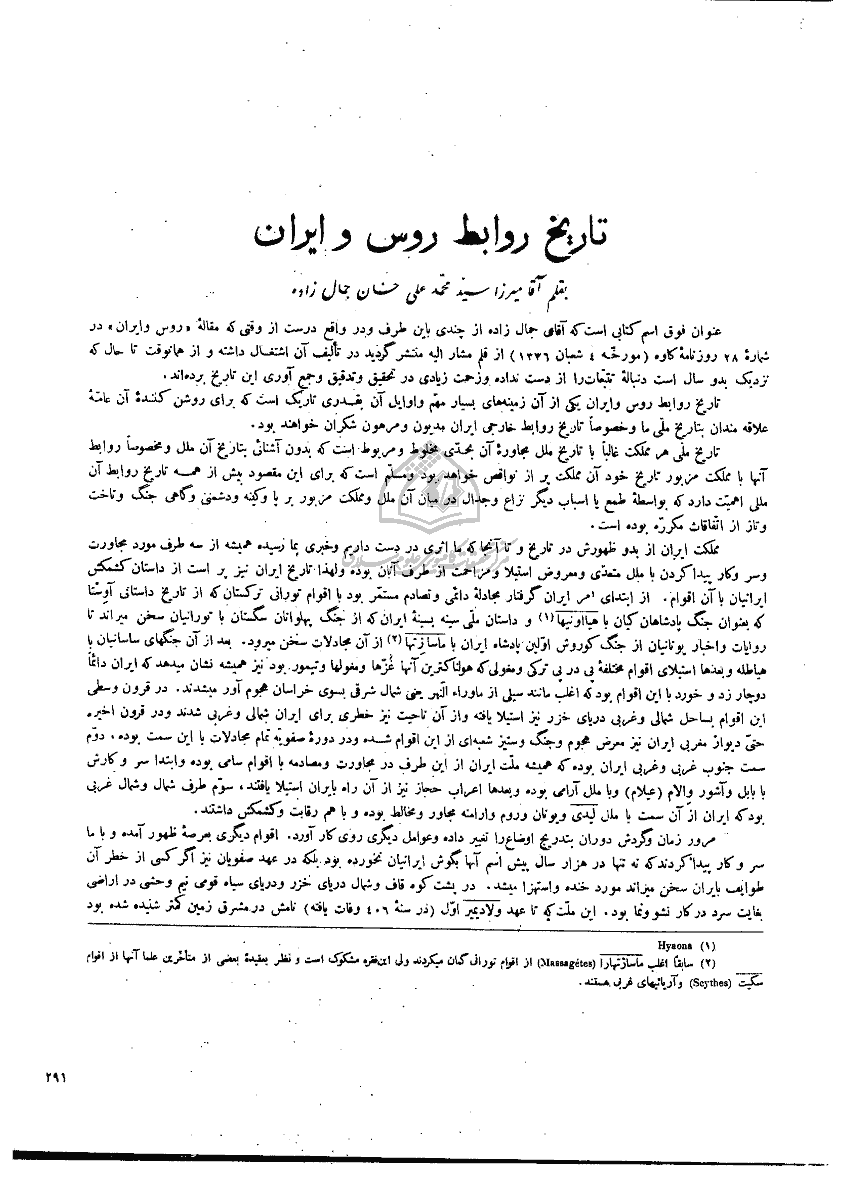 تاریخ روابط روس و ایران
بقلم آقا میرزا سیّد محمّد علی خان جمال زاده
عنوان فوق اسم کتابی است که آقای جمال زاده از چندی باین طرف ودر واقع درست از وقتی که مقالهٔ «روس وایران» در
شمارهٔ ۲۸ روزنامهٔ کاوه (مورخّهٔ ٤ شعبان ۱۳۳٦) از قلم مشار الیه منتشر گردید در تألیف آن اشتغال داشته و از همانوقت تا حال که
نزدیک بدو سال است دنبالهٔ تتبّعات‌را از دست نداده وزحمت زیادی در تحقیق وتدقیق وجمع آوری این تاریخ برده‌اند.
تاریخ روابط روس وایران یکی از آن زمینه‌های بسیار مهّم واوایل آن بقدری تاریک است که برای روشن کنندهٔ آن عامّهٔ
علاقه مندان بتاریخ ملّی ما وخصوصاً تاریخ روابط خارجی ایران مدیون ومرهون شکران خواهند بود.
تاریخ ملّی هر مملکت غالباً با تاریخ ملل مجاورهٔ آن بحدّی مخلوط ومربوط است که بدون آشنائی بتاریخ آن ملل ومخصوصاً روابط
آنها با مملکت مزبور تاریخ خود آن مملکت پر از نواقص خواهد بود ومسلّم است که برای این مقصود بیش از همه تاریخ روابط آن
مللی اهمیّت دارد که بواسطهٔ طمع یا اسباب دیگر نزاع وجدال در میان آن ملل ومملکت مزبور بر پا وکینه ودشمنی وگاهی جنگ وتاخت
وتاز از اتّفاقات مکررّه بوده است.
مملکت ایران از بدو ظهورش در تاریخ و تا آنجا که ما اثری در دست داریم وخبری بما رسیده همیشه از سه طرف مورد مجاورت
وسر وکار پیدا کردن با ملل متعدّی ومعروض استیلا ومزاحمت از طرف آنان بوده ولهذا تاریخ ایران نیز پر است از داستان کشمکش
ایرانیان با آن اقوام. از ابتدای امر ایران گرفتار مجادلهٔ دائمی وتصادم مستمّر بود با اقوام تورانی ترکستان که از تاریخ داستانی آوستا
که بعنوان جنگ پادشاهان کیان با هیااونیها (۱) و داستان ملّی سینه بسینهٔ ایران که از جنگ پهلوانان سگستان با تورانیان سخن میراند تا
روایات واخبار یونانیان از جنگ کوروش اوّلین پادشاه ایران با ماساژتها (۲) از آن مجادلات سخن میرود. بعد از آن جنگهای ساسانیان با
هیاطله وبعدها استیلای اقوام مختلفهٔ پی در پی ترکی ومغولی که هولناکترین آنها غُزها ومغولها وتیمور بود نیز همیشه نشان میدهد که ایران دائماً
دوچار زد و خورد با این اقوام بود که اغلب مانند سیلی از ماوراء النّهر یعنی شمال شرقی بسوی خراسان هجوم آور میشدند. در قرون وسطی
این اقوام بساحل شمالی وغربی دریای خزر نیز استیلا یافته واز آن ناحیت نیز خطری برای ایران شمالی وغربی شدند ودر قرون اخیره
حتیّ دیوار مغربی ایران نیز معرض هجوم وجنگ وستیز شعبه‌ای از این اقوام شده ودر دورهٔ صفویّه تمام مجادلات با این سمت بوده، دوّم
سمت جنوب غربی وغربی ایران بوده که همیشه ملّت ایران از این طرف در مجاورت ومصادمه با اقوام سامی بوده وابتدا سر و کارش
با بابل وآشور والام (عیلام) وبا ملل آرامی بوده وبعدها اعراب حجاز نیز از آن راه بایران استیلا یافتند، سوّم طرف شمال وشمال غربی
بود که ایران از آن سمت با ملل لیدی ویونان وروم وارامنه مجاور ومخالط بوده و با هم رقابت وکشمکش داشتند.
مرور زمان وگردش دوران بتدریج اوضاع‌را تغییر داده وعوامل دیگری روی کار آورد. اقوام دیگری بعرصهٔ ظهور آمده و با ما
سر و کار پیدا کردند که نه تنها در هزار سال پیش اسم آنها بگوش ایرانیان نخورده بود بلکه در عهد صفویان نیز اگر کسی از خطر آن
طوایف بایران سخن میراند مورد خنده واستهزا میشد. در پشت کوه قاف وشمال دریای خزر ودریای سیاه قومی نیم وحشی در اراضی
بغایت سرد در کار نشو ونما بود. این ملّت که تا عهد ولادیمیر اوّل (در سنهٔ ٤۰٦ وفات یافته) نامش در مشرق زمین کمتر شنیده شده بود
(۱) Hyaona
(۲) سابقاً اغلب ماساژتهارا (Massagétes) از اقوام تورانی گمان میکردند ولی این‌فقره مشکوک است و نظر بعقیدهٔ بعضی از متأخّرین علما آنها از اقوام
سکیت (Scythes) وآریائیهای غربی هستند.
۲۹۱